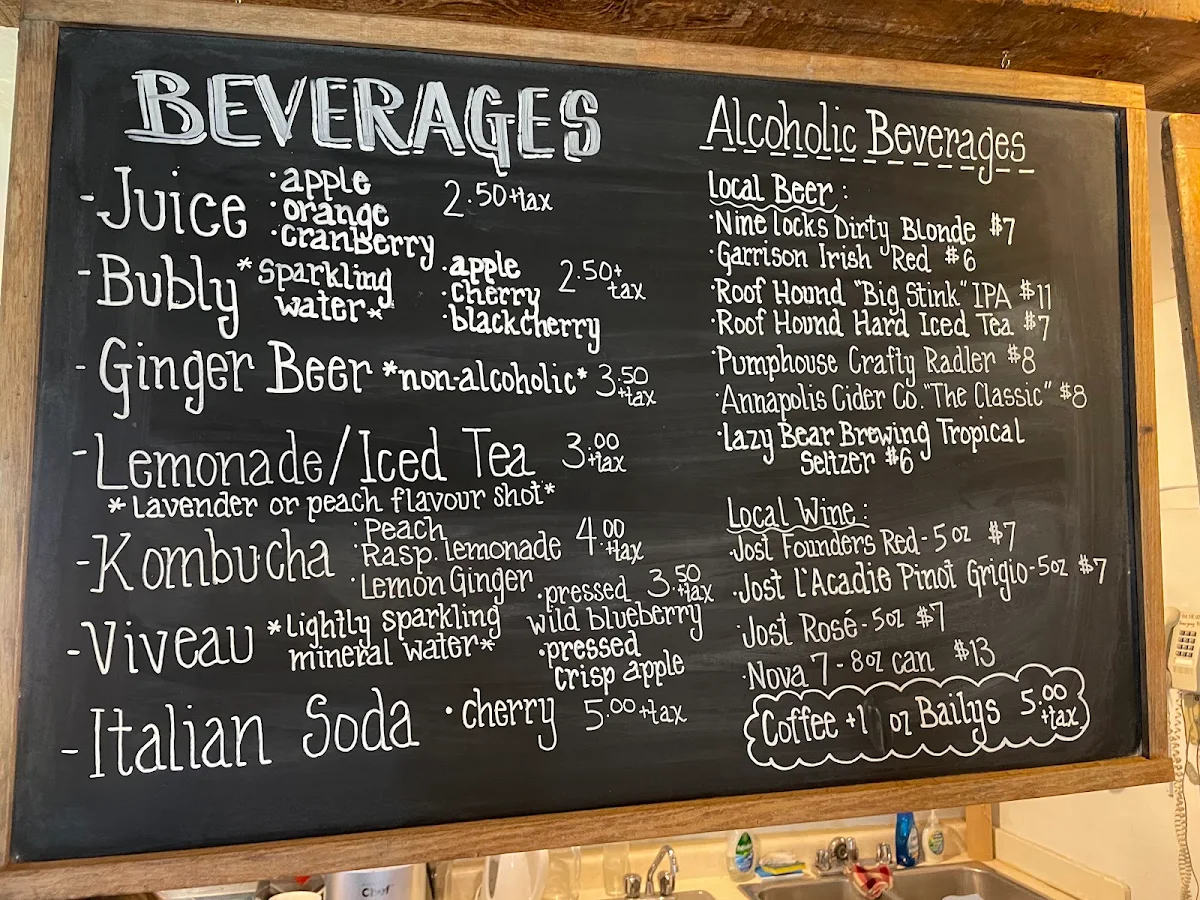 BEVERAGES
- Juice · apple 2.50+tax
· orange
· cranberry
- Bubly *sparkling water* · apple 2.50+tax
· cherry
· blackcherry
- Ginger Beer *non-alcoholic* 3.50+tax
- Lemonade/Iced Tea 3.00+tax
*Lavender or peach flavour shot*
- Kombucha · Peach 4.00+tax
· Rasp. lemonade
· Lemon Ginger
- Viveau *Lightly sparkling mineral water* · pressed 3.50+tax
wild blueberry
· pressed
crisp apple
- Italian Soda · cherry 5.00+tax
Alcoholic Beverages
Local Beer:
· Nine Locks Dirty Blonde $7
· Garrison Irish Red $6
· Roof Hound "Big Stink" IPA $11
· Roof Hound Hard Iced Tea $7
· Pumphouse Crafty Radler $8
· Annapolis Cider Co. "The Classic" $8
· Lazy Bear Brewing Tropical
Seltzer $6
Local Wine:
· Jost Founders Red - 5oz $7
· Jost l'Acadie Pinot Grigio - 5oz $7
· Jost Rosé - 5oz $7
· Nova 7 - 8oz can $13
Coffee +1 oz Bailys 5.00+tax
Chef